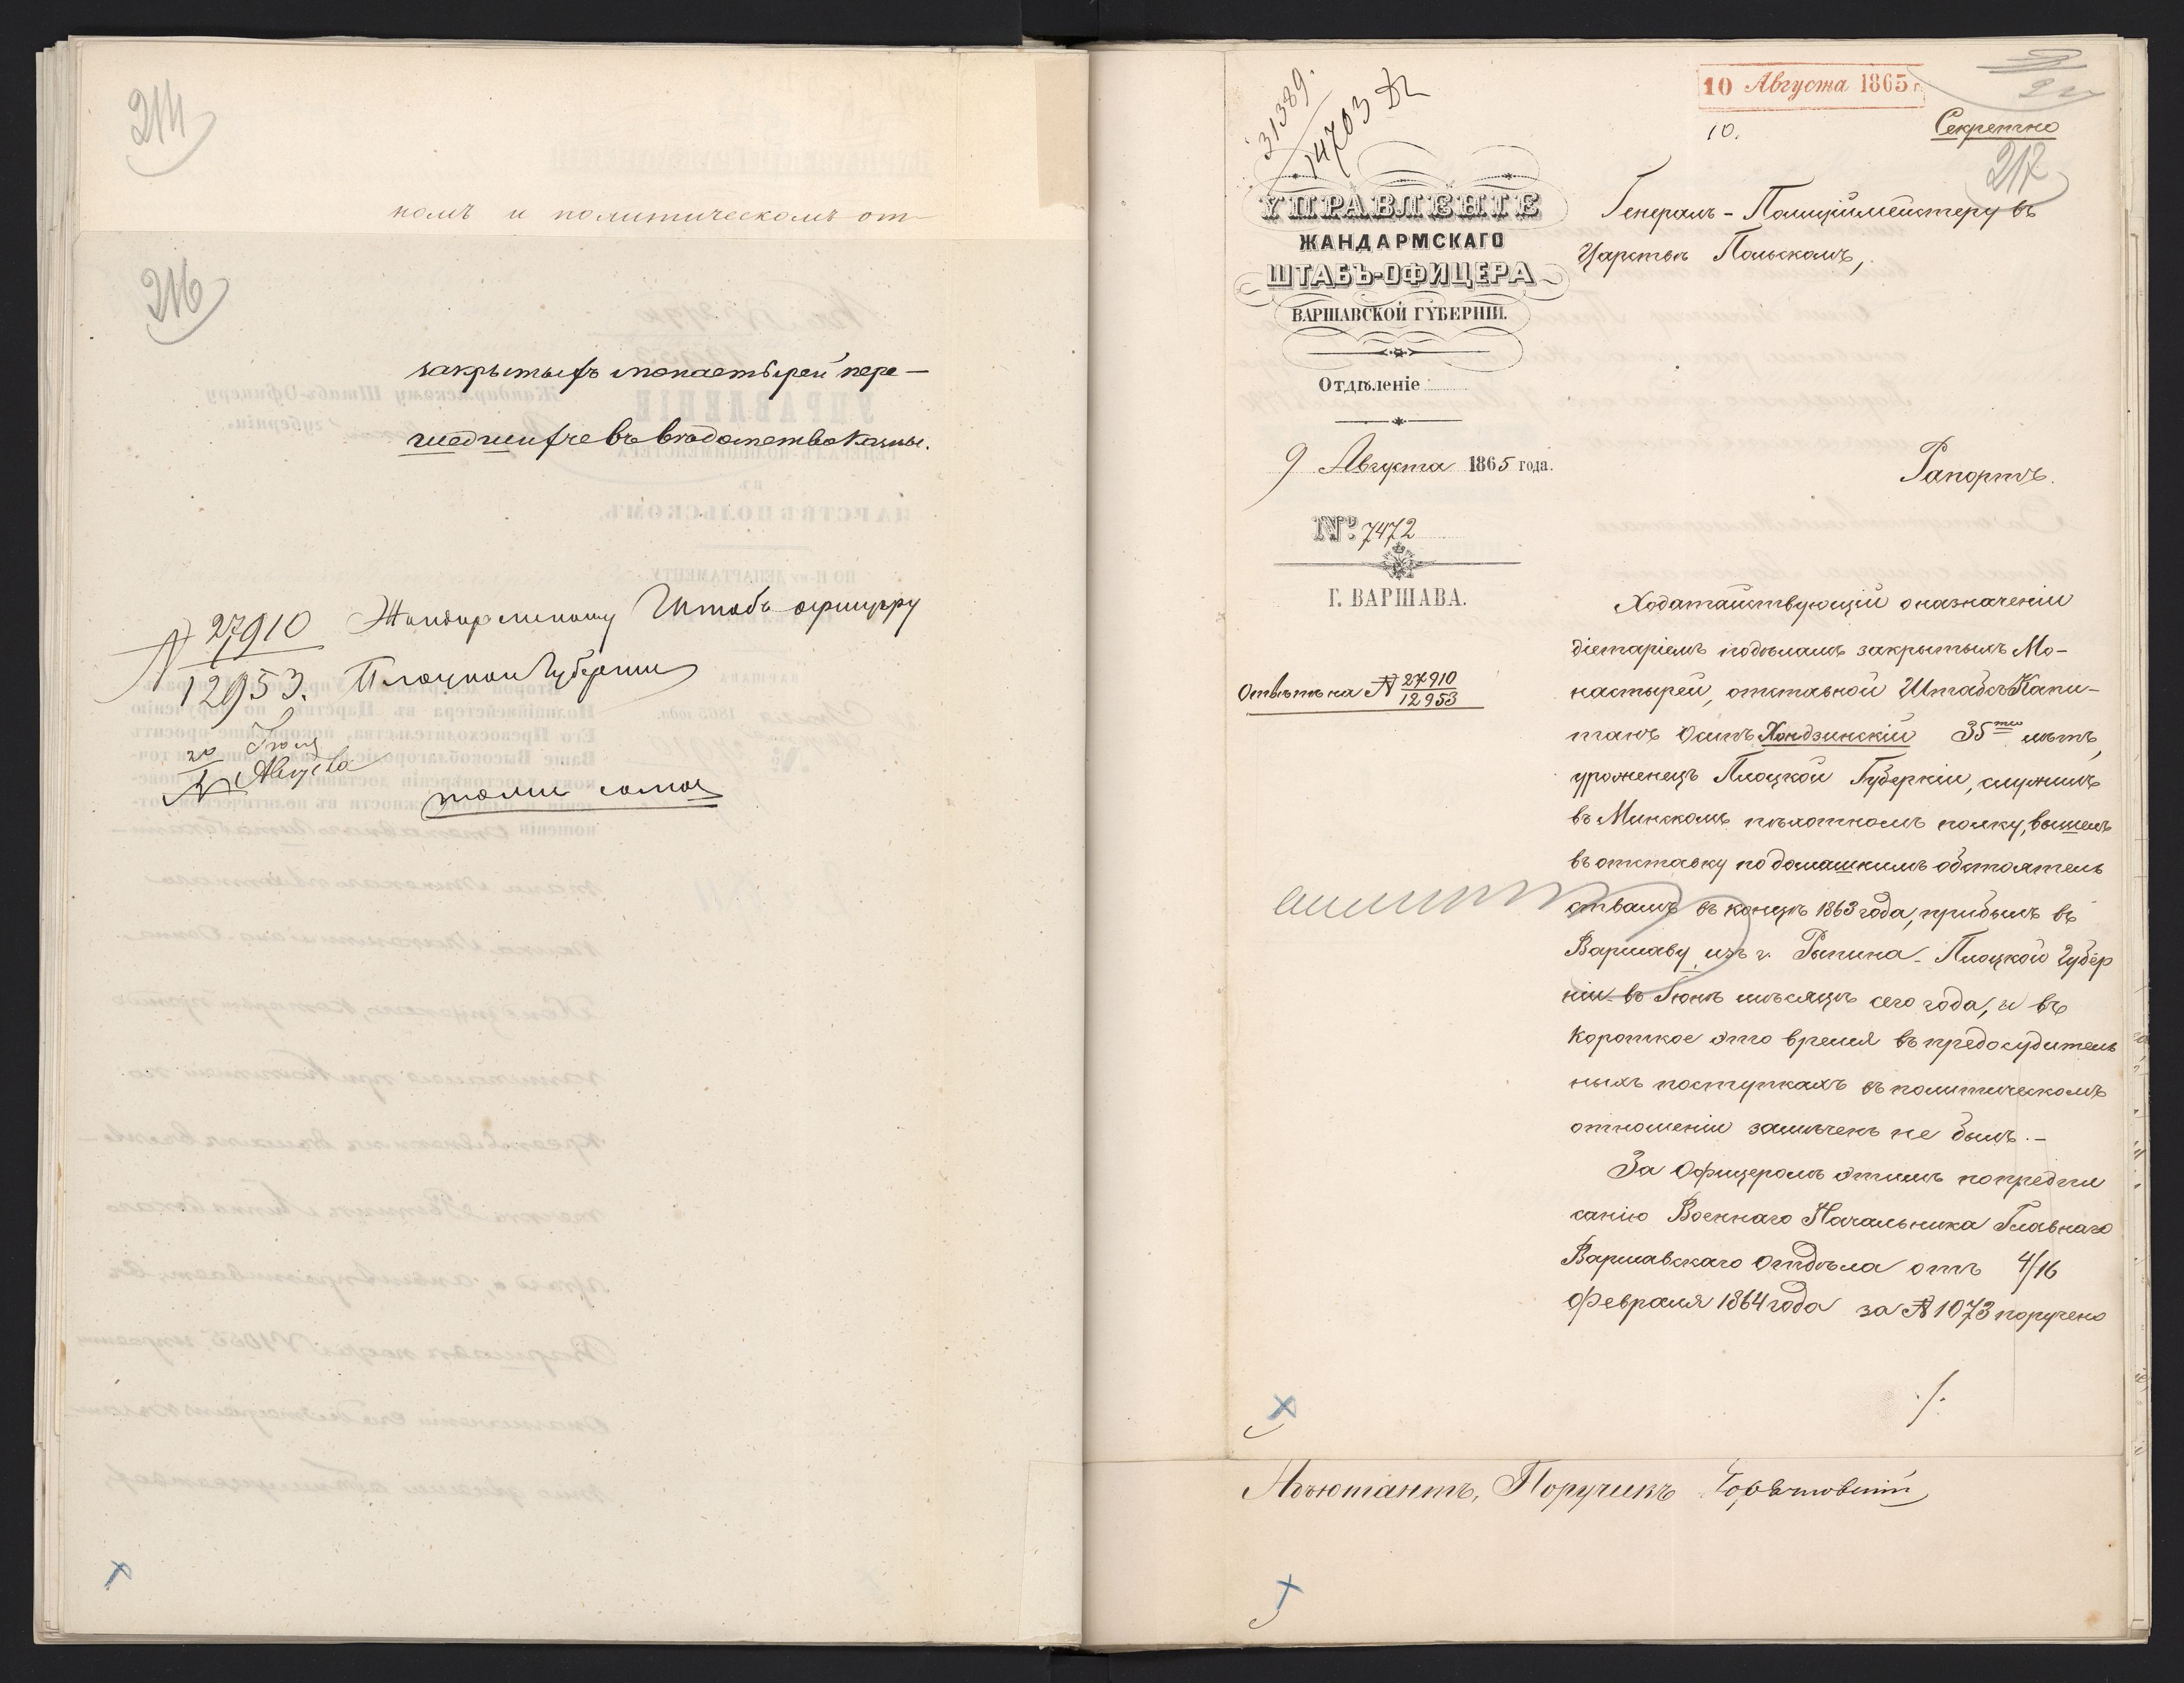 214
номъ и политическомъ от-
216
закрытыхъ монастырей пере-
шедшихъ въ вѣдомство Казны.
№ 27910
12953.
Жандармскому Штабъ-офицеру
Плоцкой Губерніи
30 Іюля
Августа
тоже самое
31389.
14703
10 Августа 1865 г.
10.
Секретно
217
УПРАВЛЕНІЕ
ЖАНДАРМСКАГО
ШТАБЪ-ОФИЦЕРА
ВАРШАВСКОЙ ГУБЕРНІИ.
Отдѣленіе
9 Августа 1865 года.
№ 7472
Г. ВАРШАВА.
Отвѣтъ на № 27910
12953
Генералъ-Полицiймейстеру въ
Царствѣ Польскомъ,
Рапортъ.
Ходатайствующій о назначеніи
діетаріемъ по дѣламъ закрытыхъ Мо-
настырей, отставной Штабсъ-Капи-
танъ Фаитъ Хондзинскій 35ти лѣтъ,
уроженецъ Плоцкой Губерніи, служилъ
въ Минскомъ пѣхотномъ полку, вышелъ
въ отставку по домашнимъ обстоятель
ствамъ въ концѣ 1863 года, прибылъ въ
Варшаву изъ г. Рыпина Плоцкой Губер
ніи въ Іюнѣ мѣсяцѣ сего года, и въ
короткое это время въ предосудитель
ныхъ поступкахъ въ политическомъ
отношеніи замѣченъ не былъ.-
За Офицеромъ этимъ по предпи
санію Военнаго Начальника Главнаго
Варшавскаго Отдѣла отъ 4/16
Февраля 1864 года за № 1073 поручено
./.
Адъютантъ, Поручикъ